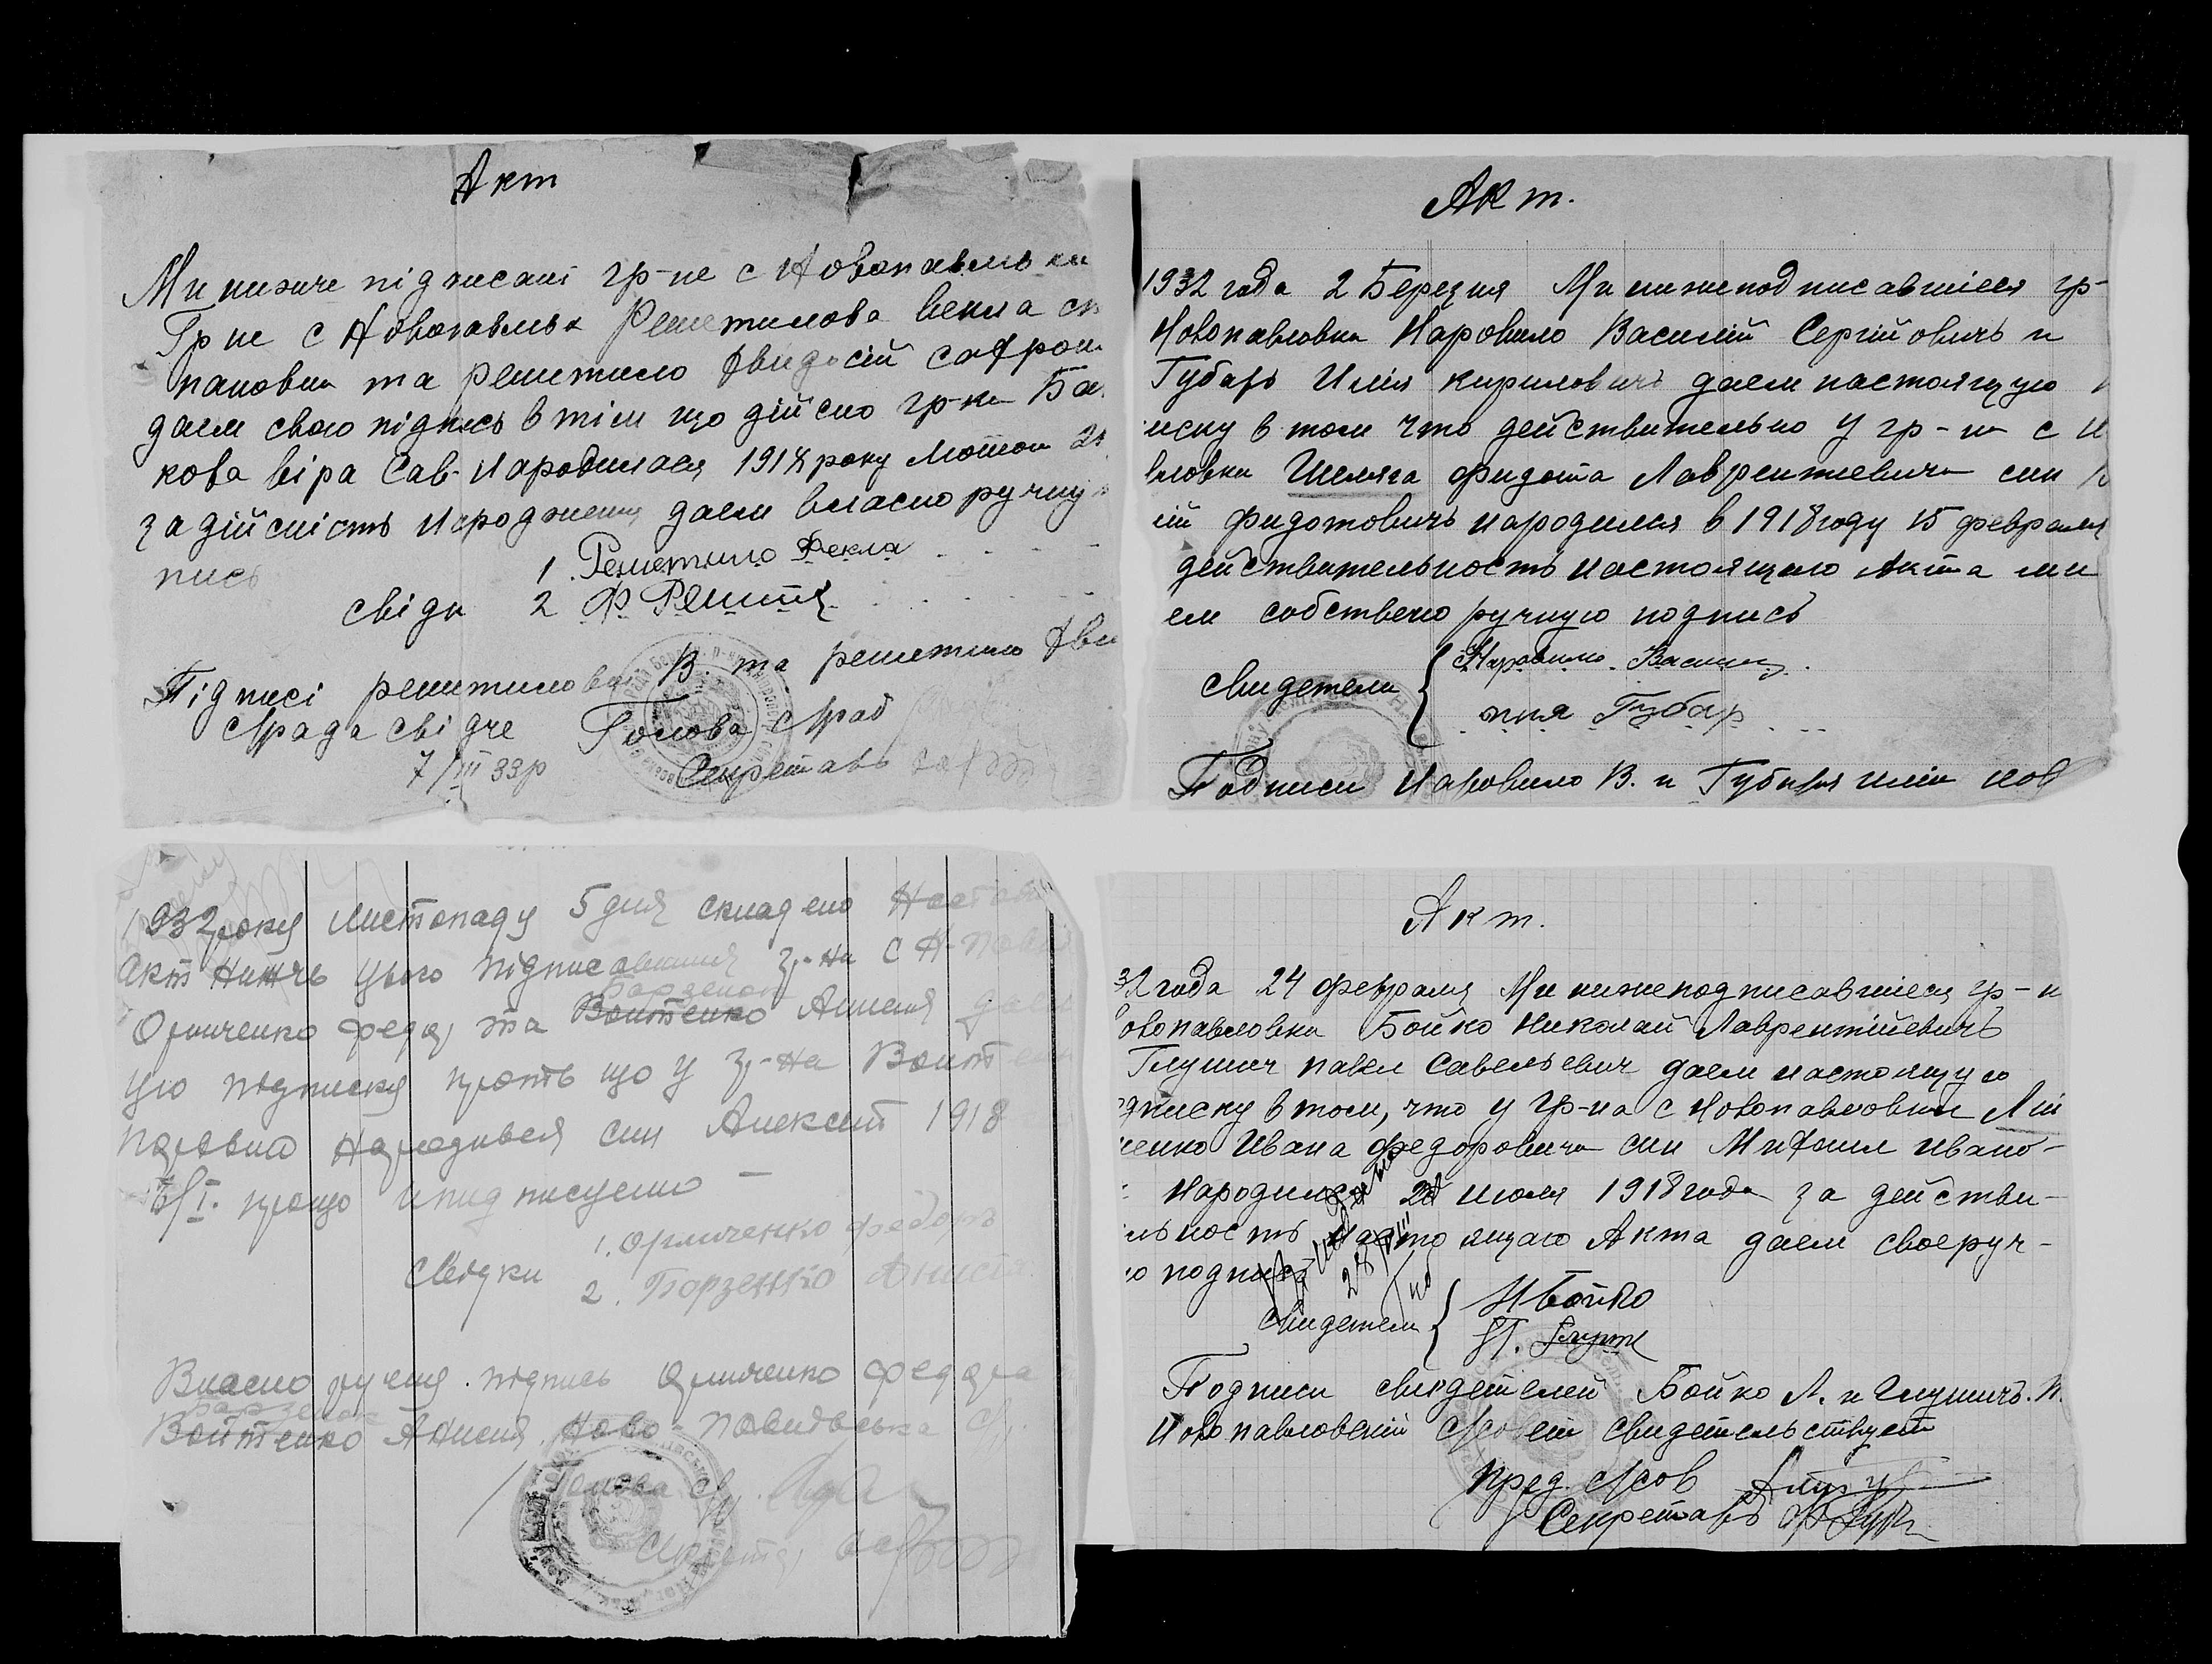 Акт
Ми нижче підписані гр-не с Новопавльки
Гр не с Новопавльк Решетилова Векла
пановна та Решетило Авидосій Софрон
даєм свою підпись в тім що дійсно гр-ки Ба
кова Віра Сав- народилася 1918 року Лютом
за дійсність народження даєм власно ручну
пись
свідк
1. Решетило Фекла
2 Ф Решит
Підписі решетилова В. та решетило Ави
с/рада свідче Голова с/рад
7/III 33р Секретарь
Акт.
1932 года 2 Березня Ми нижеподписавшіеся гр-
Новопавловки Наровило Василій Сергійовичь и
Губарь Илія кирилович даем настоящую
иску в том что действительно у гр-на с Н
вловки Шеляга Фидота Лаврентиевича син
ій Фидотовичь народился в 1918 году 15 февраля
действительность настоящего Акта ми
ем собствено ручную подпись
Свидетели
Наровило Васили
илія Губар
Подписи Наровило В. и Губаря илии нов
1932 року Листопаду 5 дня складено Настоя
акт Нижчь цього підписавшийся гр-ни с Н-Павл
Борзенок
Омниченко федор та Войтенко Анисия даем
цю підписку проть що у гр-на Войтен
Народився син Алексей 1918
I. прощо и підписуємо
Свідки
1. Омниченко федоръ
2. Борзенко Анисія
Власно ручня підпись Омниченко федора
Борзенок
Войтенко Анисия Ново-Павлівська
Голова с/р
Секретар
Акт.
32 года 24 февраля Ми нижеподписавшиеся гр-н
овопавловки Бойко Николай Лаврентійевичь
Глушич павел Савельевич даем настоящую
дписку в том, что у гр-на с Новопавловки Лит
ченко Ивана Федоровича син Михаил ивано-
Народился 28 июля 1918 года за действи-
льность настоящаго Акта даем своеруч-
ю подпись
28/VIII
Свидетели
Н Бойко
П. Глуш
Подписи свидетелей Бойко Л. и Глушичь. П.
Новопавловский с/совет свидетельствует
Пред. с/сов
Секретарь